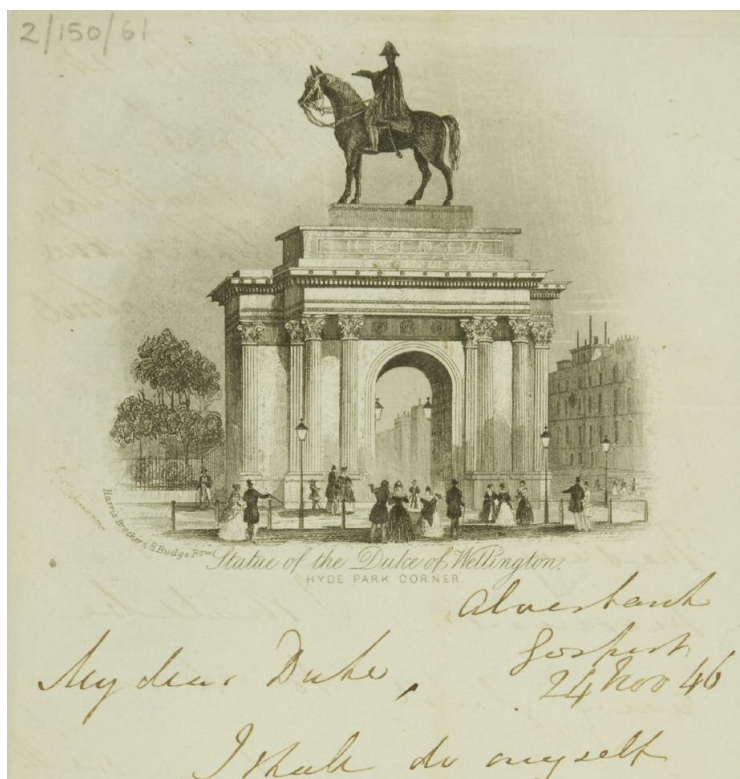 2/150/61
Harris Brothers 8 Budge Row
Statue of the Duke of Wellington.
HYDE PARK CORNER.
Alverbank
Gosport
24 Nov 46
My dear Duke,
I shall do myself